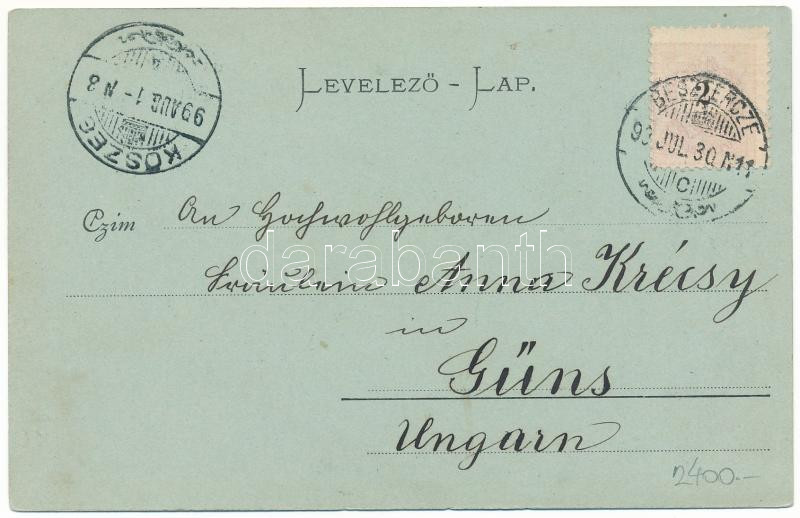 KŐSZEG
99 AUG. 1 - N 8
LEVELEZŐ - LAP.
2
BESZTERCZE
99 JUL. 30 N11
C
Czim
An Hochwohlgeboren
Fräulein Anna Krécsy
in
Güns
Ungarn
darabanth
2400.-